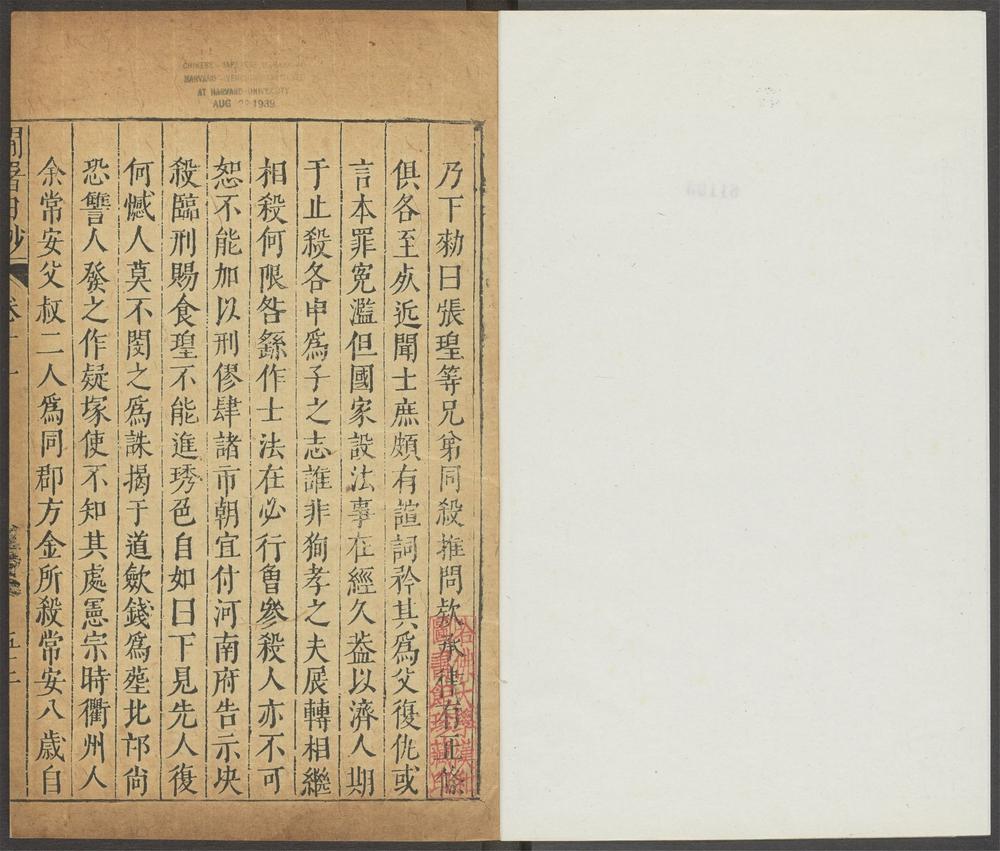 乃下勑曰張瑝等兄弟同殺推問欵承律有正條
俱各至死近聞士庶頗有諠詞矜其爲父復仇或
言本罪寃濫但國家設法事在經久葢以濟人期
于止殺各申爲子之志誰非狥孝之夫展轉相繼
相殺何限咎繇作士法在必行曾參殺人亦不可
恕不能加以刑僇肆諸市朝宜付河南府告示决
殺臨刑賜食瑝不能進琇色自如曰下見先人復
何憾人莫不閔之爲誄揭于道斂錢爲塟北邙尙
恐讐人發之作疑塚使不知其處憲宗時衢州人
余常安父叔二人爲同郡方金所殺常安八歲自
卷十一
AT HARVARD UNIVERSITY
AUG 1939